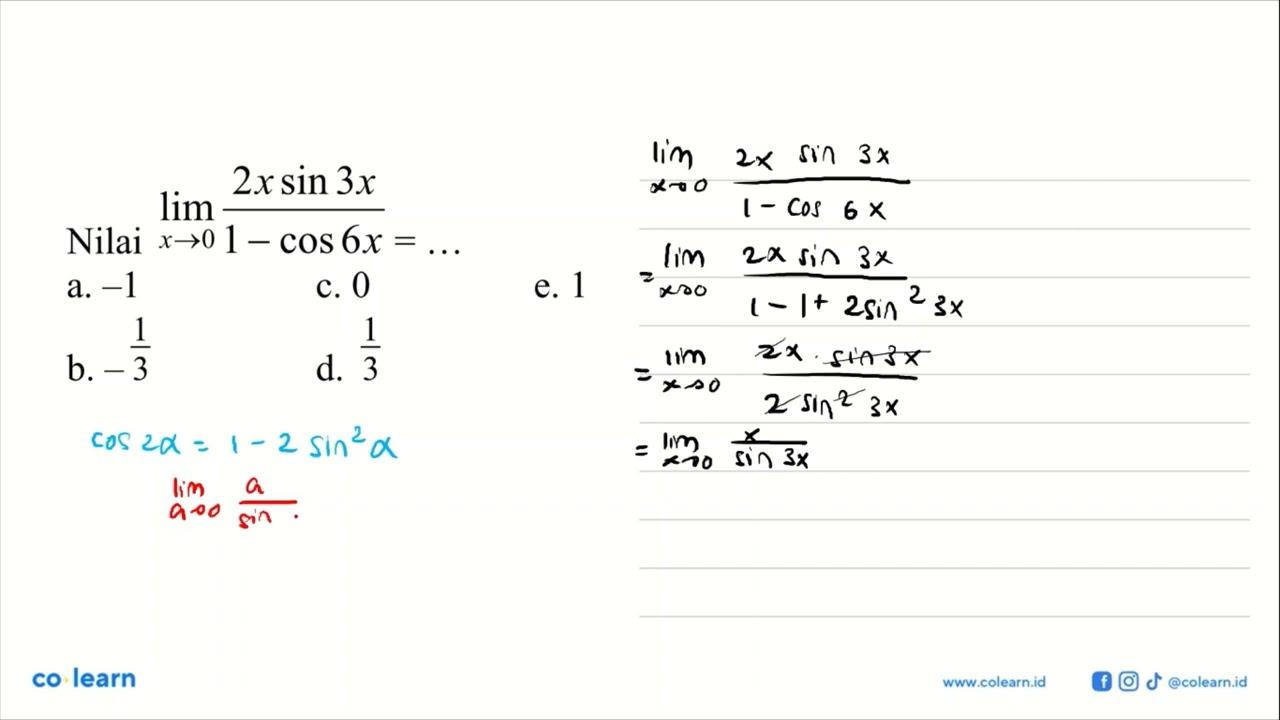 Nilai lim x→0 2x sin 3x / 1 − cos 6x = ...
a. –1 c. 0 e. 1
b. – 1/3 d. 1/3
cos 2α = 1 - 2 sin² α
lim a→0 a / sin .
lim x→0 2x sin 3x / 1 - cos 6x
= lim x→0 2x sin 3x / 1 - 1 + 2 sin² 3x
= lim x→0 2x . sin 3x / 2 sin² 3x
= lim x→0 x / sin 3x
co·learn
www.colearn.id @colearn.id